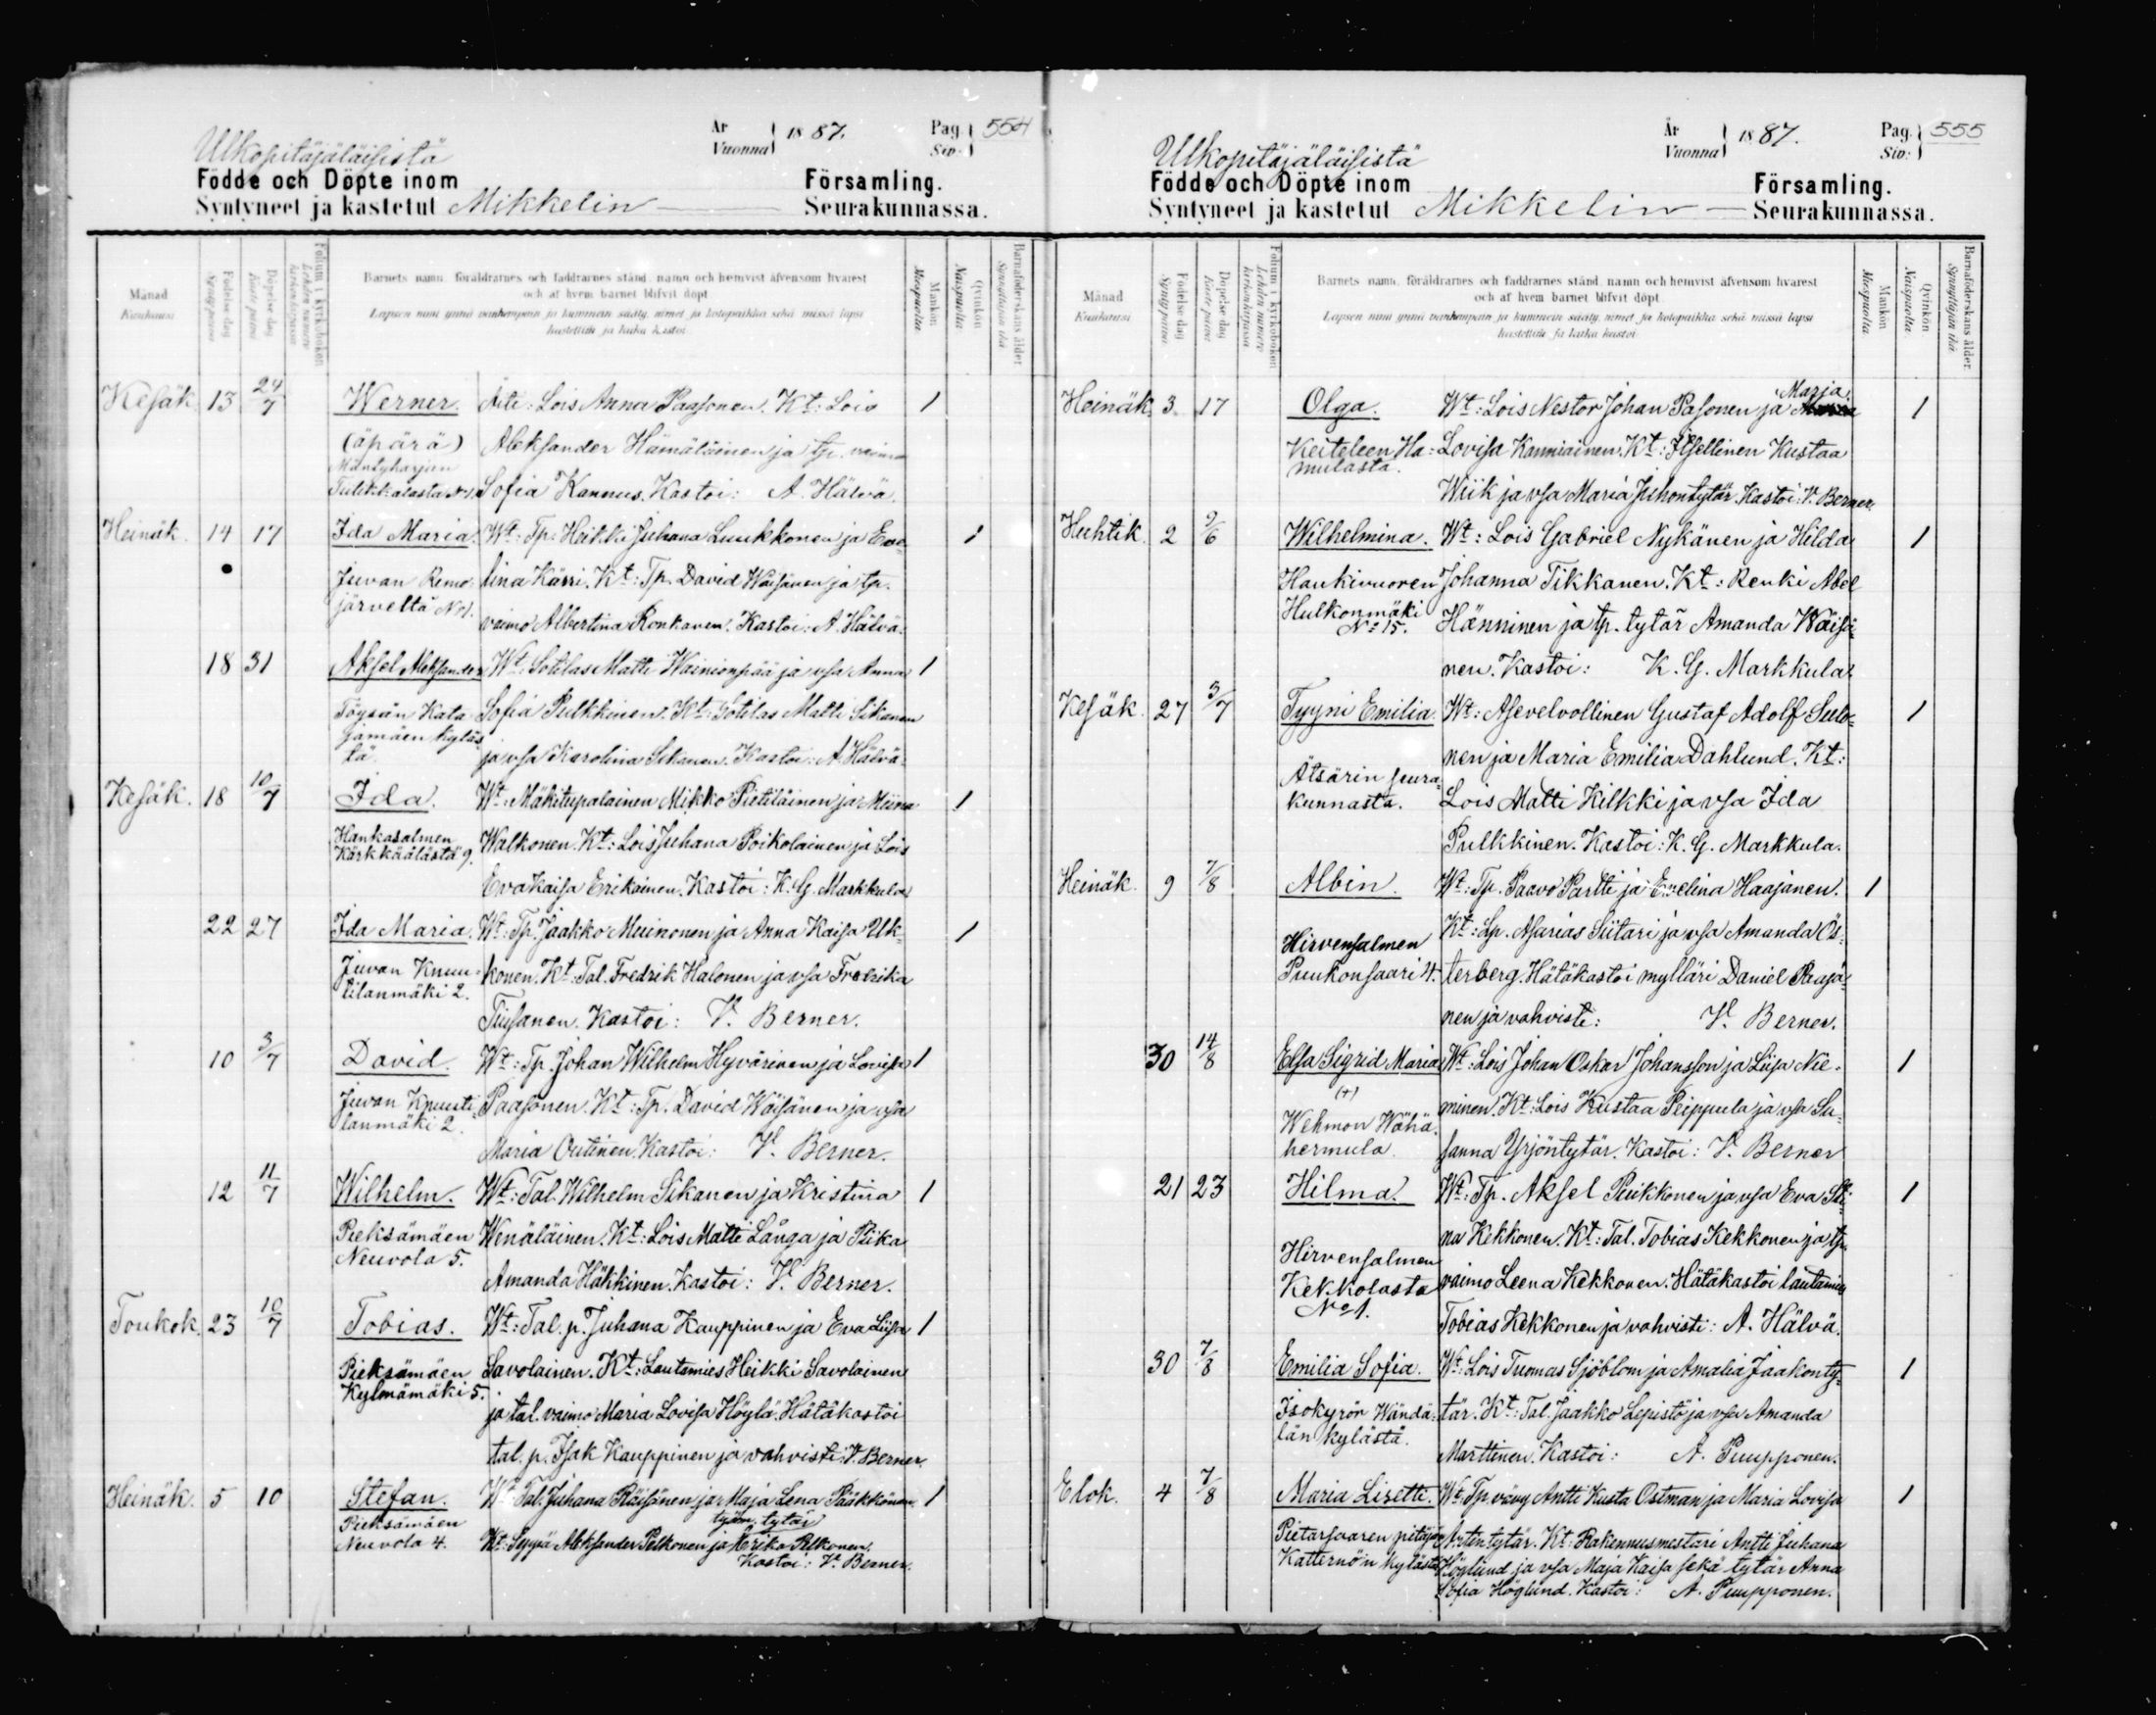 Ulkopitäjäläisistä
År
Vuonna
1887.
Pag.
Siv:
554
Födde och Döpte inom
Församling.
Syntyneet ja kastetut Mikkelin Seurakunnassa.
Månad
Kuukausi
Födelse dag
Syntypäivä
Döpelse dag
Kaste päivä
Folium i kyrkoboken
Lehden numero kirkonkirjassa
Barnets namn, föräldrarnes och faddrarnes stånd, namn och hemvist äfvensom hvarest
och af hvem barnet blifvit döpt
Lapsen nimi ynnä vanhempain ja kummein sääty, nimet ja kotopaikka sekä missä lapsi
kastettiin ja kuka kastoi
Mankön
Miespuolta
Qvinkön
Naispuolta
Barnaföderskans ålder
Synnyttäjän ikä
Kesäk. 13 24/7 Werner. Äiti: Lois Anna Paasonen. Kt: Lois 1
(äpärä) Aleksander Hämäläinen ja tp. vaimo
Mäntyharjun
Tulikkalasta No 1. Sofia Kannus. Kastoi: A. Hälvä.
Heinäk. 14 17 Ida Maria. Wt: Tp. Heikki Juhana Luukkonen ja Eve- 1
Juvan Remo- lina Kärri. Kt: Tp. David Wäisänen ja tp.
järveltä No 1. vaimo Albertina Ronkanen. Kastoi: A. Hälvä.
18 31 Aksel Aleksander Wt: Sotilas Matti Wainionpää ja vsa Anna 1
Töysän Kata- Sofia Pulkkinen. Kt: Sotilas Matti Sikanen
jamäen kyläs-
tä. ja vsa Karolina Sikanen. Kastoi: A. Hälvä.
Kesäk. 18 10/7 Ida. Wt: Mäkitupalainen Mikko Pietiläinen ja Miina 1
Hankasalmen
Kärkkäälästä 9. Walkonen. Kt: Lois Juhana Poikolainen ja Lois
Eva Kaisa Erikäinen. Kastoi: K. G. Markkula
22 27 Ida Maria. Wt: Tp. Jaakko Muinonen ja Anna Kaisa Uk- 1
Juvan Knuu-
tilanmäki 2. konen. Kt: Tal. Fredrik Halonen ja vsa Fredrika
Tiusanen. Kastoi: V. Berner.
10 3/7 David. Wt: Tp. Johan Wilhelm Hyvärinen ja Lovisa 1
Juvan Knuuti-
lanmäki 2. Paasonen. Kt: Tp. David Wäisänen ja vsa
Maria Outinen. Kastoi: V. Berner.
12 11/7 Wilhelm. Wt: Tal. Wilhelm Sikanen ja Kristina 1
Pieksämäen
Neuvola 5. Wenäläinen. Kt: Lois Matti Långa ja Piika
Amanda Häkkinen. Kastoi: V. Berner.
Toukok. 23 10/7 Tobias. Wt: Tal. p. Juhana Kauppinen ja Eva Liisa 1
Pieksämäen
Kylmämäki 5. Savolainen. Kt: Lautamies Heikki Savolainen
ja tal. vaimo Maria Lovisa Höylä. Hätäkastoi
tal. p. Isak Kauppinen ja vahvisti: V. Berner.
Heinäk. 5 10 Stefan. Wt: Tal. Juhana Räisänen ja Maja Lena Pääkkönen. 1
Pieksämäen
Neuvola 4. Kt: Seppä Aleksander Pelkonen ja työm. tytär Eerika Pelkonen.
Kastoi: V. Berner.
Ulkopitäjäläisistä
År
Vuonna
1887.
Pag.
Siv:
555
Födde och Döpte inom
Församling.
Syntyneet ja kastetut Mikkelin Seurakunnassa.
Månad
Kuukausi
Födelse dag
Syntypäivä
Döpelse dag
Kaste päivä
Folium i kyrkoboken
Lehden numero kirkonkirjassa
Barnets namn, föräldrarnes och faddrarnes stånd, namn och hemvist äfvensom hvarest
och af hvem barnet blifvit döpt
Lapsen nimi ynnä vanhempain ja kummein sääty, nimet ja kotopaikka sekä missä lapsi
kastettiin ja kuka kastoi
Mankön
Miespuolta
Qvinkön
Naispuolta
Barnaföderskans ålder
Synnyttäjän ikä
Heinäk. 3 17 Olga. Wt: Lois Nestor Johan Pasonen ja Marja 1
Keiteleen Ha-
mulasta. Lovisa Kanniainen. Kt: Itsellinen Kustaa
Wiik ja vsa Maria Juhontytär. Kastoi: V. Berner.
Huhtik. 2 9/6 Wilhelmina. Wt: Lois Gabriel Nykänen ja Hilda 1
Haukivuoren Johanna Tikkanen. Kt: Renki Abel
Hulkonmäki
No 15. Hänninen ja tp. tytär Amanda Wäisä-
nen. Kastoi: K. G. Markkula.
Kesäk. 27 3/7 Tyyni Emilia. Wt: Asevelvollinen Gustaf Adolf Sulo- 1
nen ja Maria Emilia Dahlund. Kt:
Ätsärin seura-
kunnasta. Lois Matti Kilkki ja vsa Ida
Pulkkinen. Kastoi: K. G. Markkula.
Heinäk. 9 7/8 Albin. Wt: Tp. Paavo Partti ja Emelina Haajanen. 1
Hirvensalmen Kt: Lp. Asarias Siitari ja vsa Amanda Ös-
Puukonsaari 4. terberg. Hätäkastoi mylläri Daniel Paajä-
nen ja vahvisti: V. Berner.
30 14/8 Elsa Sigrid Maria Wt: Lois Johan Oskar Johansson ja Liisa Nie- 1
(+)
Wehmon Wähä-
hermula. minen. Kt: Lois Kustaa Peippula ja vsa Su-
sanna Yrjöntytär. Kastoi: V. Berner
21 23 Hilma. Wt: Tp. Aksel Puikkonen ja vsa Eva Sti- 1
na Kekkonen. Kt: Tal. Tobias Kekkonen ja tp.
Hirvensalmen
Kekkolasta
No 1. vaimo Leena Kekkonen. Hätäkastoi lautamies
Tobias Kekkonen ja vahvisti: A. Hälvä.
30 7/8 Emilia Sofia. Wt: Lois Tuomas Sjöblom ja Amalia Jaakonty- 1
Isokyrön Wändä-
län kylästä. tär. Kt: Tal. Jaakko Lepistö ja vsa Amanda
Marttinen. Kastoi: A. Puupponen.
Elok. 4 7/8 Maria Lisette. Wt: Tp. vävy Antti Kusta Östman ja Maria Lovisa 1
Pietarsaaren pitäjän Antintytär. Kt: Rakennusmestari Antti Juhana
Katternö'n kylästä Höglund ja vsa Maja Kaisa sekä tytär Anna
Sofia Höglund. Kastoi: A. Puupponen.